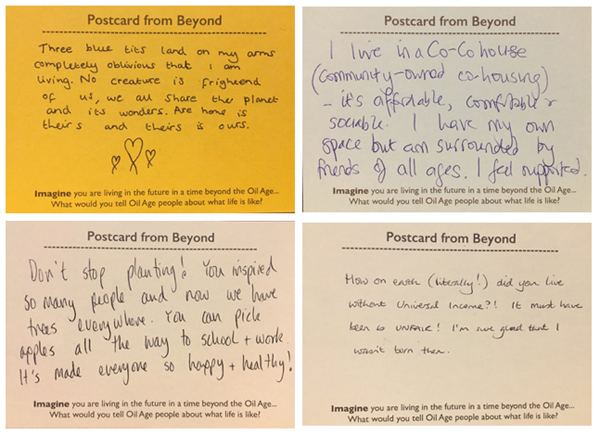 Postcard from Beyond
Three blue tits land on my arms
completely oblivious that I am
living. No creature is frightend
of us, we all share the planet
and its wonders. Are home is
theirs and theirs is ours.
Imagine you are living in the future in a time beyond the Oil Age...
What would you tell Oil Age people about what life is like?
Postcard from Beyond
I live in a Co-Co house
(community-owned co-housing)
- it's affordable, comfortable +
sociable. I have my own
space but am surrounded by
friends of all ages. I feel supported.
Imagine you are living in the future in a time beyond the Oil Age...
What would you tell Oil Age people about what life is like?
Postcard from Beyond
Don't stop planting! You inspired
so many people and now we have
trees everywhere. You can pick
apples all the way to school + work.
It's made everyone so happy + healthy!
Imagine you are living in the future in a time beyond the Oil Age...
What would you tell Oil Age people about what life is like?
Postcard from Beyond
How on earth (literally!) did you live
without Universal Income?! It must have
been so UNFAIR! I'm sure glad that I
wasn't born then.
Imagine you are living in the future in a time beyond the Oil Age...
What would you tell Oil Age people about what life is like?